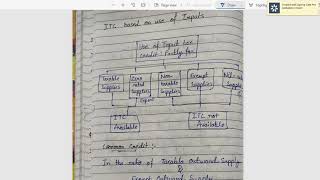 ITC based on use of Inputs
Use of Input tax
credit: Partly for
Taxable
Supplies
Zero
rated
Supplies
Non-
taxable
Supplies
Exempt
Supplies
Nil
Supplies
Export
ITC
Available
ITC not
Available
Common Credit:-
In the ratio of Taxable Outward Supply
&
Exempt Outward Supply